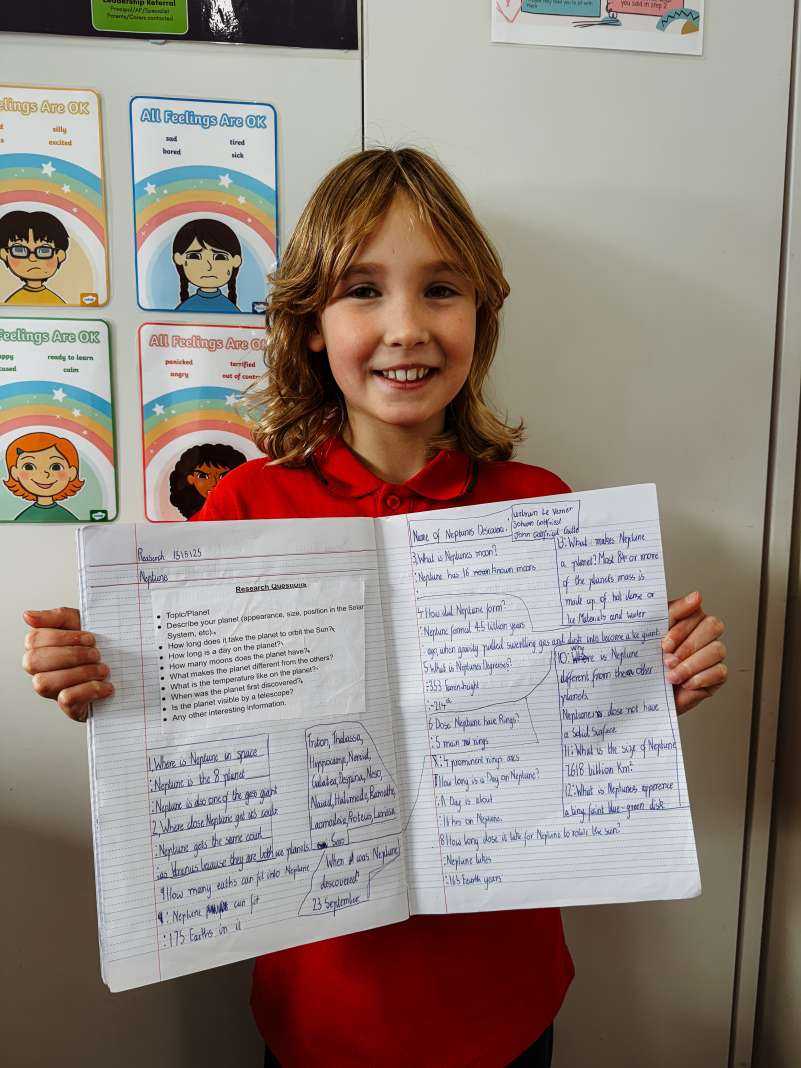 Leadership Referral
Principal/AP/Specialist
Parents/Carers contacted
you said in step 2
eelings Are OK
silly
excited
All Feelings Are OK
sad
tired
bored
sick
Feelings Are OK
ppy
ready to learn
calm
All Feelings Are OK
panicked
terrified
angry
out of contr
Research 15/5/25
Neptune
Research Questions
• Topic/Planet
• Describe your planet (appearance, size, position in the Solar
System, etc).
• How long does it take the planet to orbit the Sun?
• How long is a day on the planet?
• How many moons does the planet have?
• What makes the planet different from the others?
• What is the temperature like on the planet?
• When was the planet first discovered?
• Is the planet visible by a telescope?
• Any other interesting information.
1.Where is Neptune in space
:Neptune is the 8 planet
:Neptune is also one of the gass giant
2.Where dose Neptune get its
:Neptune gets the same
as because they are both ice planets.
9 How many eaths can fit into Neptune
9: Neptune can fit
:175 Earths in it
Triton, Thalassa,
Hippocamp, Nereid,
Galatea, Despina, Neso,
Naiad, Halimede,
Laomedeia, Proteus, Larissa,
Sao
When was Neptune
discovered
23 September
Name of Neptunes Discover:
Le Verrier
Johann Gottfried
John Gottfried Galle
3.What is Neptunes moon?
:Neptune has 16 known moons
4 How did Neptune form?
:Neptune formed 4.5 billion years
ago when gravity pulled swirlling gas and dust into become a ice giant.
5 What is Neptunes Degreeses?
:-353
:-214°
6 Dose Neptune have Rings?
:5 main rings
:4 prominent rings arcs
7 How long is a Day on Neptune?
:A Day is about
:16 hrs on Neptune
8 How long dose is take for Neptune to rotate the sun?
:Neptune takes
:165 Earth years
13:What makes Neptune
a planet? Most 80% or more
of the planets mass is
made up of hot dense or
Ice Materials and water
10: Why is Neptune
different from the other
planets
Neptune dose not have
a Solid Surface
11: What is the size of Neptune
7.618 billion Km²
12: What is Neptunes apperence
a tiny faint blue-green disk